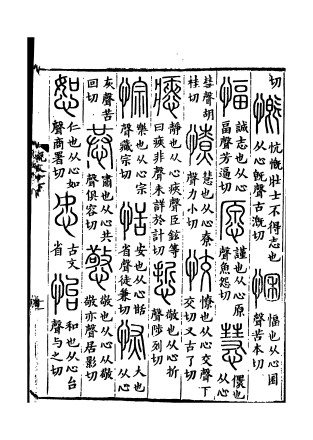 切慨忼慨壯士不得志也从心既聲古溉切悃愊也从心困聲苦本切
愊誠志也从心畐聲芳逼切愿謹也从心原聲魚怨切慧儇也从心
彗聲胡桂切憭慧也从心尞聲力小切恔憭也从心交聲下交切又古了切
瘱靜也从心㾜聲臣鉉等曰㾜非聲未詳於計切悊敬也从心折聲陟列切
悰樂也从心宗聲藏宗切恬安也从心甛省聲徒兼切恢大也从心
灰聲苦回切恭肅也从心共聲俱容切憼敬也从心从敬敬亦聲居影切
恕仁也从心如聲商署切㣽古文省怡和也从心台聲與之切